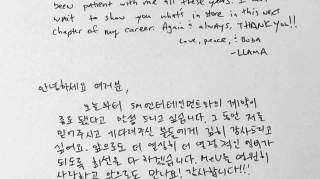 been patient with me all these years. I can't
wait to show you what's in store in this next
chapter of my career. Again & always, THANK you!!
Love, peace, & Boba
-LLAMA
안녕하세요 여러분,
오늘부터 SM엔터테인먼트와의 계약이
종료 됐다고 말씀 드리고 싶습니다. 그 동안 저를
믿어주시고 기다려주신 분들에게 깊이 감사드리고
싶어요. 앞으로도 더 열심히 더 열정적인 엠버가
되도록 최선을 다 하겠습니다. MeU를 영원히
사랑하고 앞으로도 만나요! 감사합니다!!!